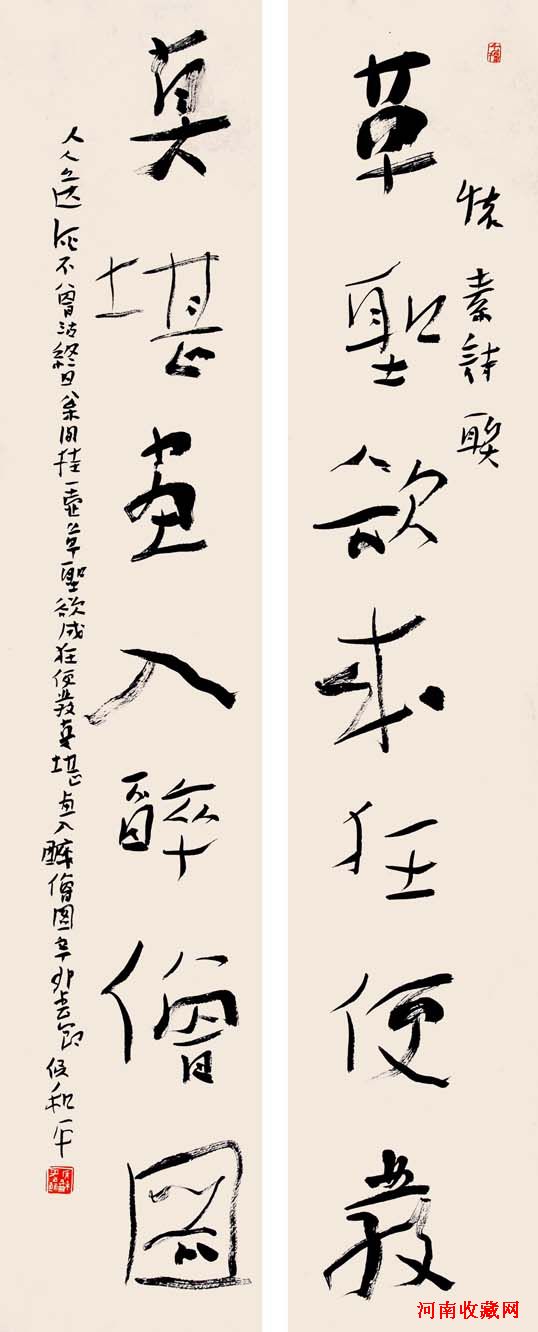 懷素詩聯
草聖欲成狂便發
真堪畫入醉僧圖
人人送酒不曾沽終日松間挂一壺草聖欲成狂便發真堪畫入醉僧圖辛卯春節侯和平
河南收藏网